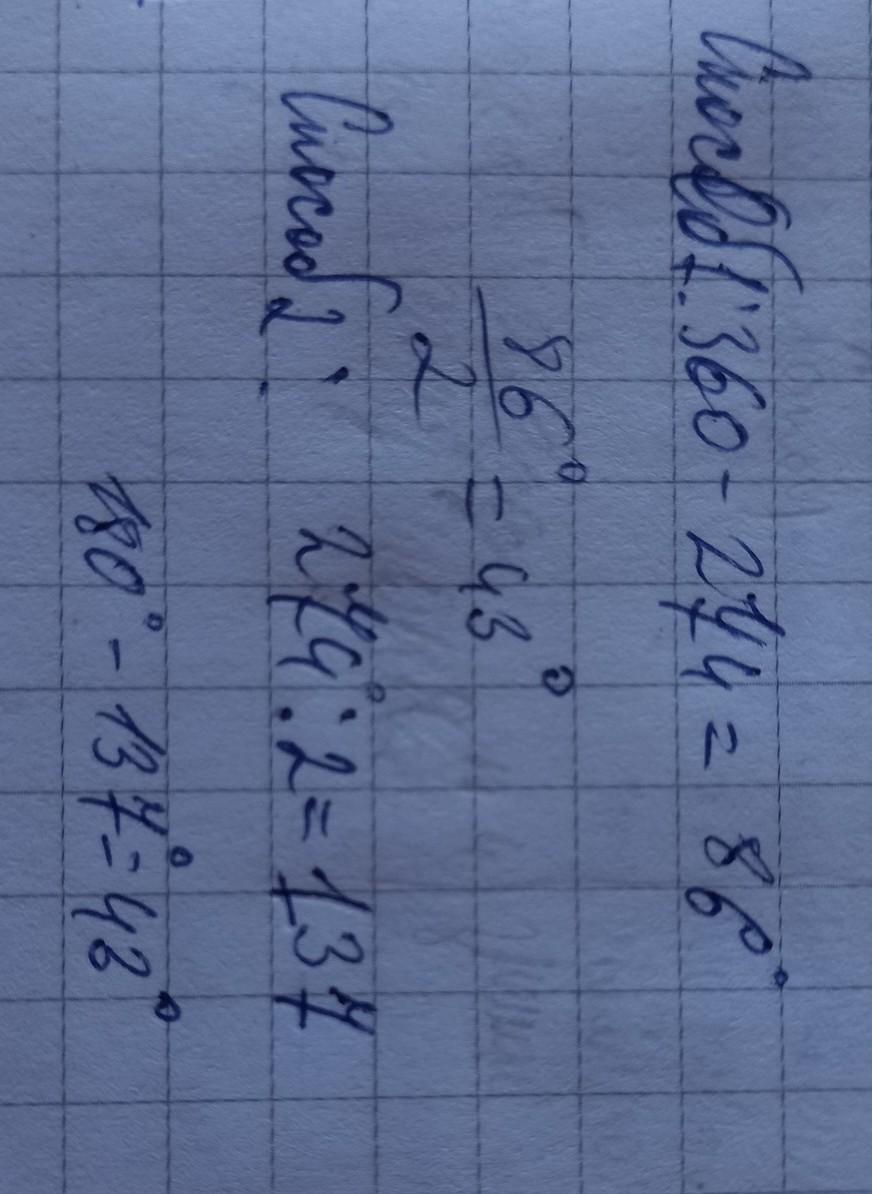 Способ 1: 360 - 274 = 86°
86°/2 = 43°
Способ 2: 274° : 2 = 137
180° - 137° = 43°